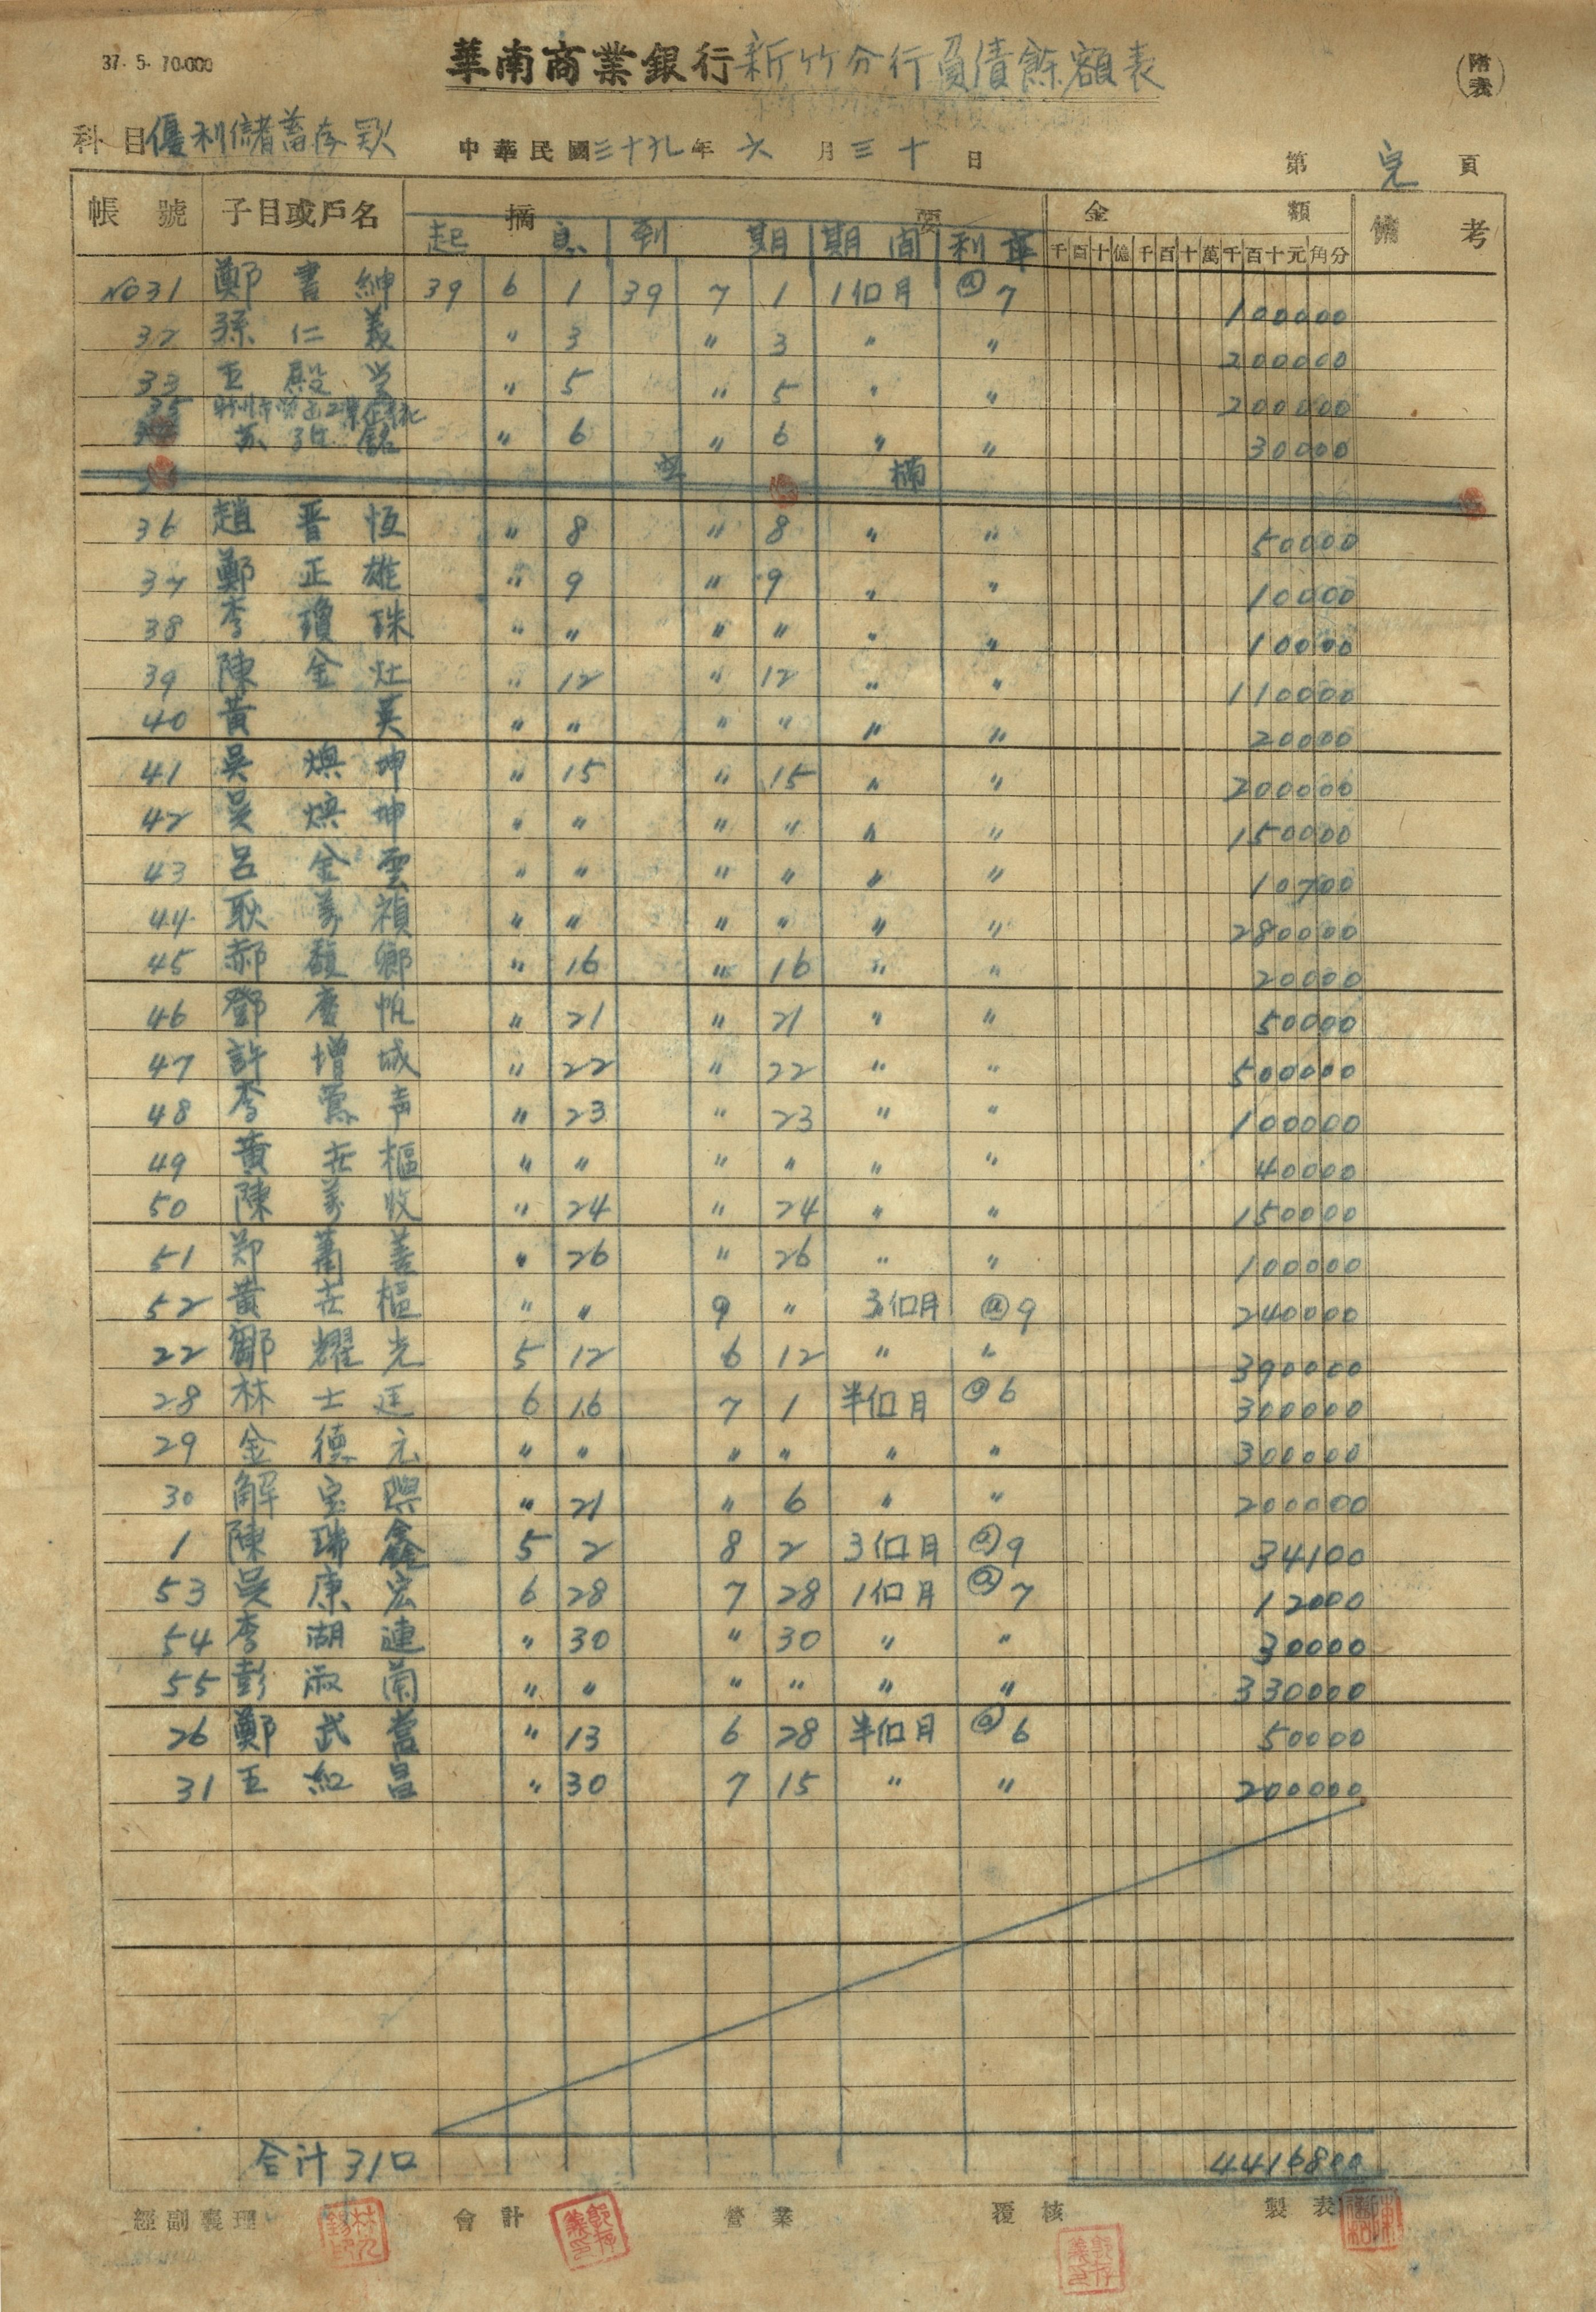 37. 5. 70.000
華南商業銀行新竹分行負債餘額表
(附表)
科目優利儲蓄存款 中華民國三十九年六月三十日 第 完 頁
帳號 子目或戶名 摘要 金額 備考
起息 到期 期間 利率 千百十億千百十萬千百十元角分
No31 鄭書紳 39 6 1 39 7 1 1個月 @7 100000
32 孫仁義 〃 3 〃 3 〃 〃 200000
33 王殿 〃 5 〃 5 〃 〃 200000
35
銘 〃 6 〃 6 〃 〃 30000
空欄
36 趙晋恆 〃 8 〃 8 〃 〃 50000
37 鄭正雄 〃 9 〃 9 〃 〃 10000
38 李瓊珠 〃 〃 〃 〃 〃 〃 10000
39 陳金灶 〃 12 〃 12 〃 〃 110000
40 黃英 〃 〃 〃 〃 〃 〃 20000
41 吳煥坤 〃 15 〃 15 〃 〃 200000
42 吴煥坤 〃 〃 〃 〃 〃 〃 150000
43 呂金雲 〃 〃 〃 〃 〃 〃 10700
44 耿萬禎 〃 〃 〃 〃 〃 〃 280000
45 郝馥鄉 〃 16 〃 16 〃 〃 20000
46 鄧慶 〃 21 〃 21 〃 〃 50000
47 許增城 〃 22 〃 22 〃 〃 500000
48 李鶯声 〃 23 〃 23 〃 〃 100000
49 黃在樞 〃 〃 〃 〃 〃 〃 40000
50 陳萬收 〃 24 〃 24 〃 〃 150000
51 郑善 〃 26 〃 26 〃 〃 100000
52 黃在樞 〃 〃 9 〃 3個月 @9 240000
22 鄒耀光 5 12 6 12 〃 〃 390000
28 林士廷 6 16 7 1 半個月 @6 300000
29 金德元 〃 〃 〃 〃 〃 〃 300000
30 解宝 〃 21 〃 6 〃 〃 200000
1 陳瑞鑫 5 2 8 2 3個月 @9 34100
53 吴康宏 6 28 7 28 1個月 @7 12000
54 李湖連 〃 30 〃 30 〃 〃 30000
55 彭淑蘭 〃 〃 〃 〃 〃 〃 330000
26 鄭武當 〃 13 6 28 半個月 @6 50000
31 王紅昌 〃 30 7 15 〃 〃 200000
合计31口 4416800
經副襄理 會計 營業 覆核 製表